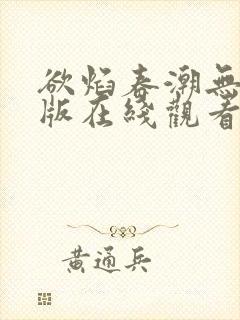 欲焰春潮無
版在綫觀看
黄通兵